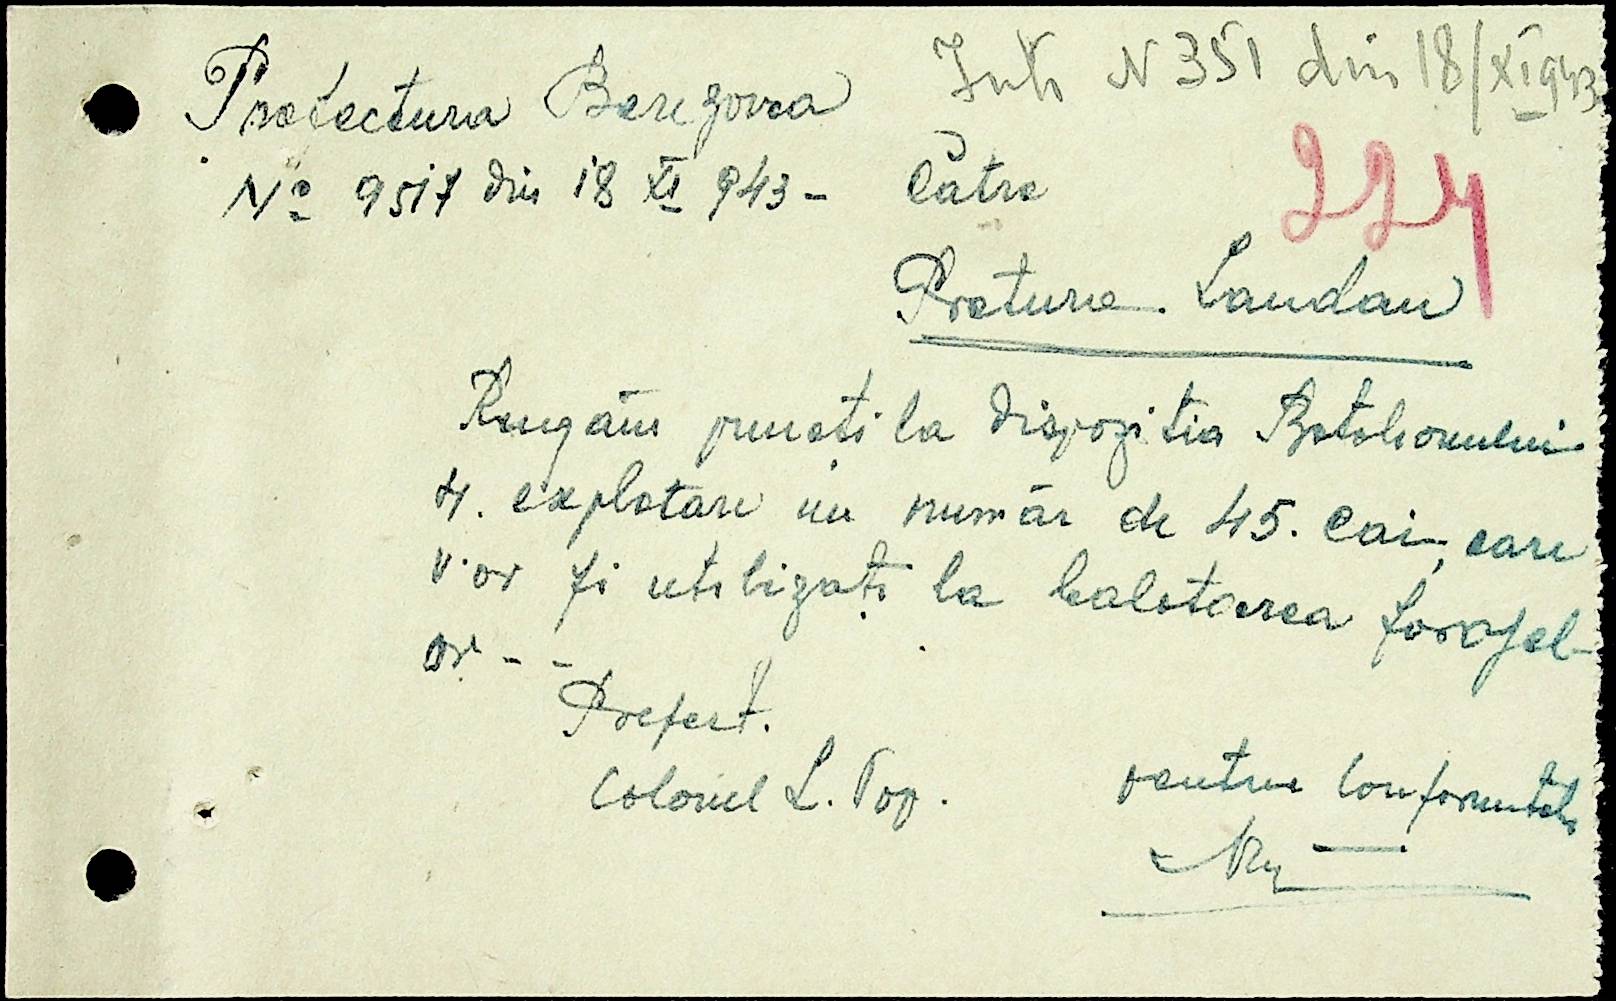 Prefectura Berezovca
No 9517 din 18 XI 943 -
N 351 din 18/XI 943
Către
224
Pretura Landau
Rugăm puneti la dispozitia Batalionului
4. explotare un număr de 45. cai, care
v.or fi utilizați la balotarea forajel-
or - -
Prefect.
Colonel L. Pop.
pentru Conformitate